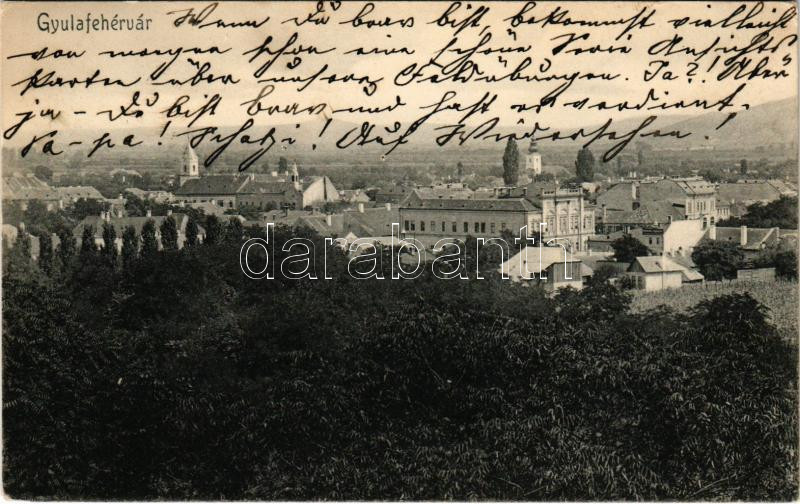 Gyulafehérvár
Wenn Du brav bist, bekommst vielleicht
von morgen schon eine schöne Serie Ansichts
Karten über unsere Feldübungen. Ja?! Aber
ja - Du bist brav und hast es verdient.
Pa-pa! Schatzi! Auf Wiedersehen!
darabanth